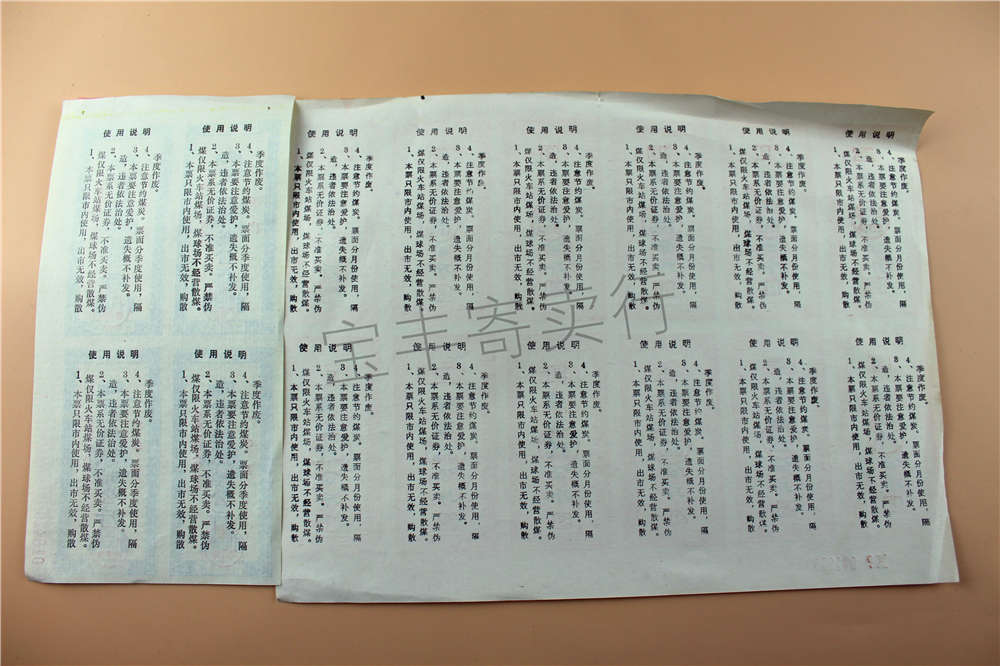 使用说明
1、本票只限市内使用，出市无效，购散
煤仅限火车站煤场，煤球场不经营散煤。
2、本票系无价证券，不准买卖。严禁伪
造，违者依法治处。
3、本票要注意爱护，遗失概不补发。
4、注意节约煤炭。票面分季度使用，隔
季度作废。
使用说明
1、本票只限市内使用，出市无效，购散
煤仅限火车站煤场，煤球场不经营散煤。
2、本票系无价证券，不准买卖。严禁伪
造，违者依法治处。
3、本票要注意爱护，遗失概不补发。
4、注意节约煤炭。票面分季度使用，隔
季度作废。
使用说明
1、本票只限市内使用，出市无效，购散
煤仅限火车站煤场，煤球场不经营散煤。
2、本票系无价证券，不准买卖。严禁伪
造，违者依法治处。
3、本票要注意爱护，遗失概不补发。
4、注意节约煤炭。票面分月份使用，隔
季度作废。
使用说明
1、本票只限市内使用，出市无效，购散
煤仅限火车站煤场，煤球场不经营散煤。
2、本票系无价证券，不准买卖。严禁伪
造，违者依法治处。
3、本票要注意爱护，遗失概不补发。
4、注意节约煤炭。票面分月份使用，隔
季度作废。
使用说明
1、本票只限市内使用，出市无效，购散
煤仅限火车站煤场，煤球场不经营散煤。
2、本票系无价证券，不准买卖。严禁伪
造，违者依法治处。
3、本票要注意爱护，遗失概不补发。
4、注意节约煤炭。票面分月份使用，隔
季度作废。
使用说明
1、本票只限市内使用，出市无效，购散
煤仅限火车站煤场，煤球场不经营散煤。
2、本票系无价证券，不准买卖。严禁伪
造，违者依法治处。
3、本票要注意爱护，遗失概不补发。
4、注意节约煤炭。票面分月份使用，隔
季度作废。
使用说明
1、本票只限市内使用，出市无效，购散
煤仅限火车站煤场，煤球场不经营散煤。
2、本票系无价证券，不准买卖。严禁伪
造，违者依法治处。
3、本票要注意爱护，遗失概不补发。
4、注意节约煤炭。票面分月份使用，隔
季度作废。
使用说明
1、本票只限市内使用，出市无效，购散
煤仅限火车站煤场，煤球场不经营散煤。
2、本票系无价证券，不准买卖。严禁伪
造，违者依法治处。
3、本票要注意爱护，遗失概不补发。
4、注意节约煤炭。票面分月份使用，隔
季度作废。
宝丰寄卖行
使用说明
1、本票只限市内使用，出市无效，购散
煤仅限火车站煤场，煤球场不经营散煤。
2、本票系无价证券，不准买卖。严禁伪
造，违者依法治处。
3、本票要注意爱护，遗失概不补发。
4、注意节约煤炭。票面分季度使用，隔
季度作废。
使用说明
1、本票只限市内使用，出市无效，购散
煤仅限火车站煤场，煤球场不经营散煤。
2、本票系无价证券，不准买卖。严禁伪
造，违者依法治处。
3、本票要注意爱护，遗失概不补发。
4、注意节约煤炭。票面分季度使用，隔
季度作废。
使用说明
1、本票只限市内使用，出市无效，购散
煤仅限火车站煤场，煤球场不经营散煤。
2、本票系无价证券，不准买卖。严禁伪
造，违者依法治处。
3、本票要注意爱护，遗失概不补发。
4、注意节约煤炭。票面分月份使用，隔
季度作废。
使用说明
1、本票只限市内使用，出市无效，购散
煤仅限火车站煤场，煤球场不经营散煤。
2、本票系无价证券，不准买卖。严禁伪
造，违者依法治处。
3、本票要注意爱护，遗失概不补发。
4、注意节约煤炭。票面分月份使用，隔
季度作废。
使用说明
1、本票只限市内使用，出市无效，购散
煤仅限火车站煤场，煤球场不经营散煤。
2、本票系无价证券，不准买卖。严禁伪
造，违者依法治处。
3、本票要注意爱护，遗失概不补发。
4、注意节约煤炭。票面分月份使用，隔
季度作废。
使用说明
1、本票只限市内使用，出市无效，购散
煤仅限火车站煤场，煤球场不经营散煤。
2、本票系无价证券，不准买卖。严禁伪
造，违者依法治处。
3、本票要注意爱护，遗失概不补发。
4、注意节约煤炭。票面分月份使用，隔
季度作废。
使用说明
1、本票只限市内使用，出市无效，购散
煤仅限火车站煤场，煤球场不经营散煤。
2、本票系无价证券，不准买卖。严禁伪
造，违者依法治处。
3、本票要注意爱护，遗失概不补发。
4、注意节约煤炭。票面分月份使用，隔
季度作废。
使用说明
1、本票只限市内使用，出市无效，购散
煤仅限火车站煤场，煤球场不经营散煤。
2、本票系无价证券，不准买卖。严禁伪
造，违者依法治处。
3、本票要注意爱护，遗失概不补发。
4、注意节约煤炭。票面分月份使用，隔
季度作废。